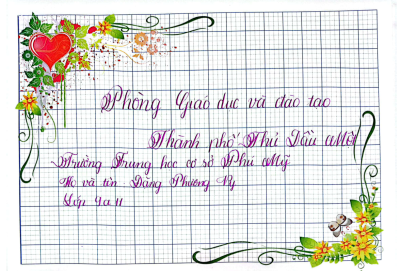 Phòng Giáo dục và đào tạo
Thành phố Thủ Dầu Một
Trường Trung học cơ sở Phú Mỹ
Họ và tên: Đặng Phương Vy
Lớp 9a11